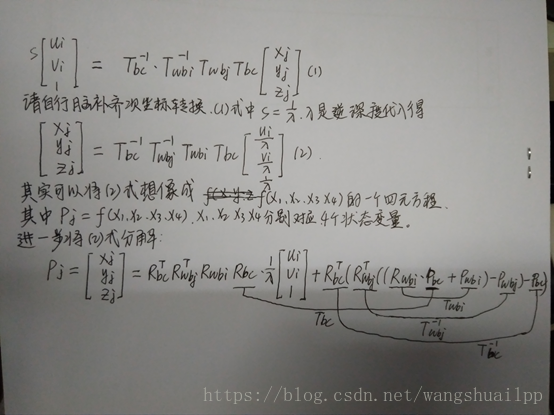 s [ui vi 1] = Tbc⁻¹ · Twbi⁻¹ Twbj Tbc [xj yj zj] (1)
请自行脑补齐次坐标转换.(1)式中 s = 1/λ. λ是逆深度代入得
[xj yj zj] = Tbc⁻¹ Twbj⁻¹ Twbi Tbc [ui/λ vi/λ 1/λ] (2).
其实可以将(2)式想像成 f(x1.x2.x3 x4)的一个四元方程.
其中 Pj = f(x1.x2.x3.x4). x1.x2 x3 x4分别对应4个状态变量。
进一步将(2)式分解:
Pj = [xj yj zj] = Rbcᵀ Rwbjᵀ Rwbi Rbc · 1/λ [ui vi 1] + Rbcᵀ(Rwbjᵀ((Rwbi · Pbc + Pwbi) - Pwbj) - Pbc)
Tbc Twbi Twbj⁻¹ Tbc⁻¹
https://blog.csdn.net/wangshuailpp